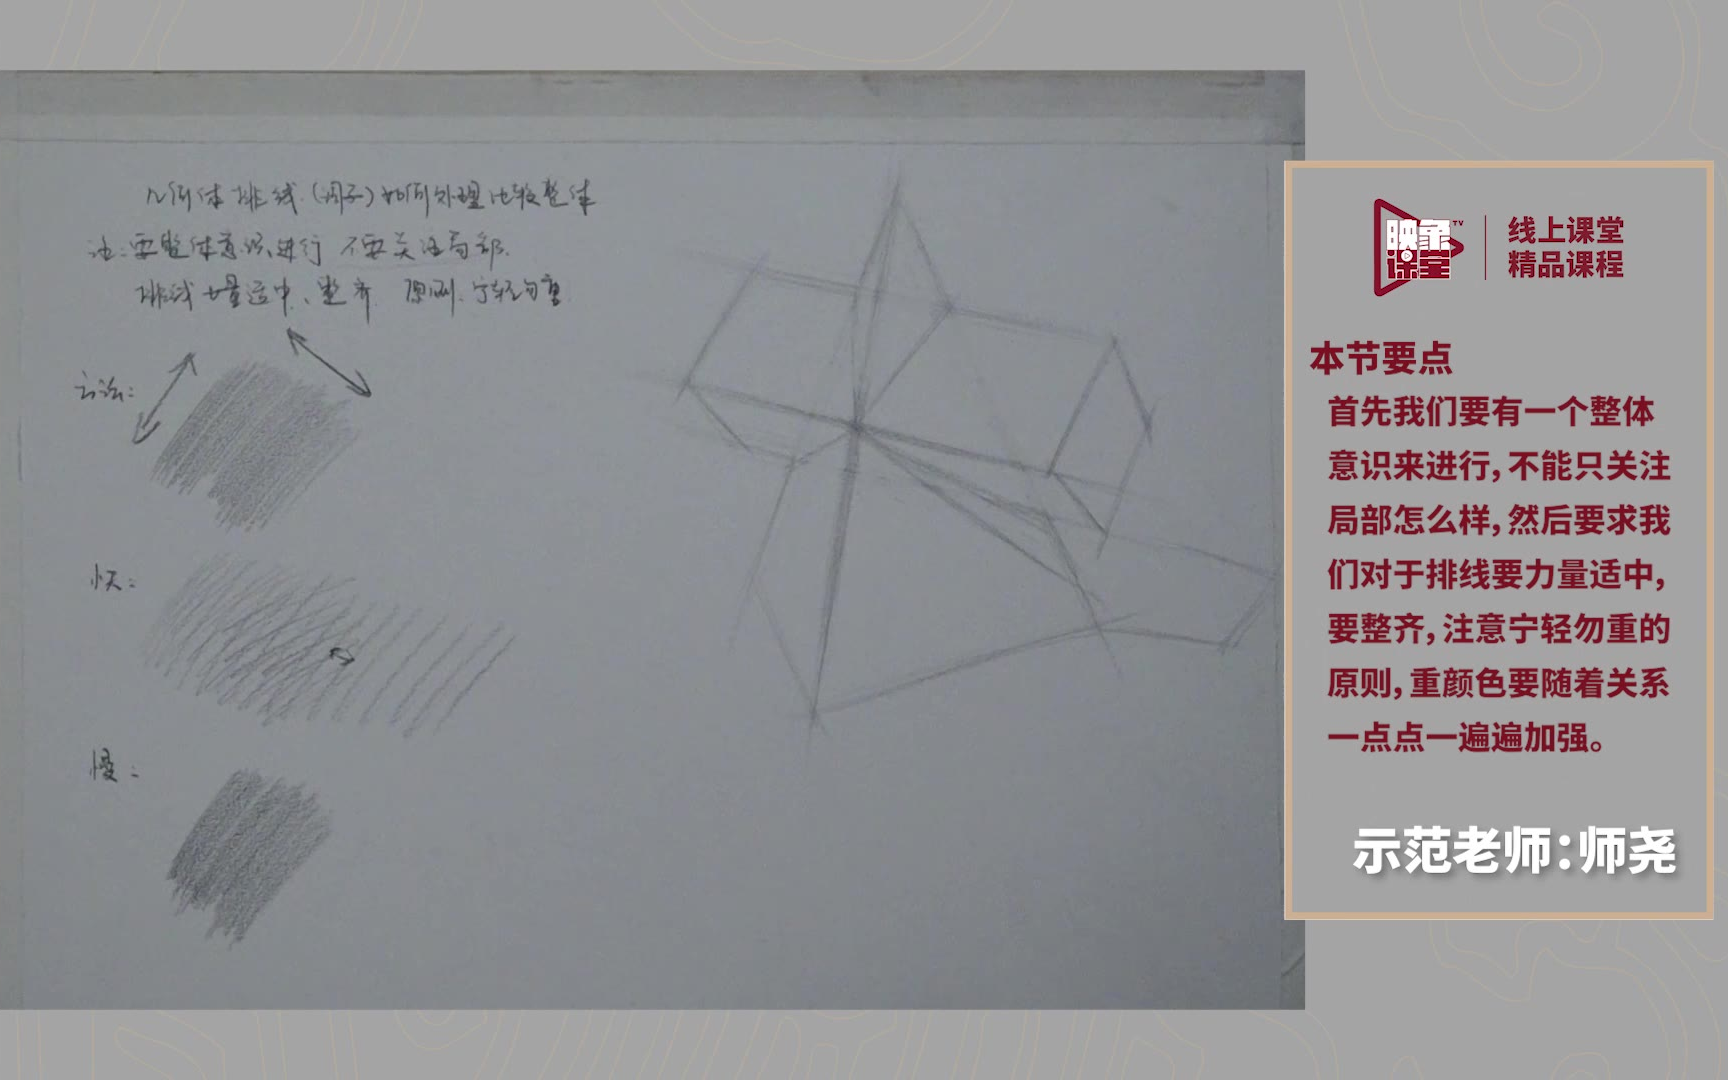 几何体排线(调子)如何处理比较整体
注:要整体意识进行 不要关注局部.
排线力量适中、整齐 原则.宁轻勿重
方法:
快:
慢:
映象课堂TV
线上课堂
精品课程
本节要点
首先我们要有一个整体
意识来进行,不能只关注
局部怎么样,然后要求我
们对于排线要力量适中,
要整齐,注意宁轻勿重的
原则,重颜色要随着关系
一点点一遍遍加强。
示范老师:师尧